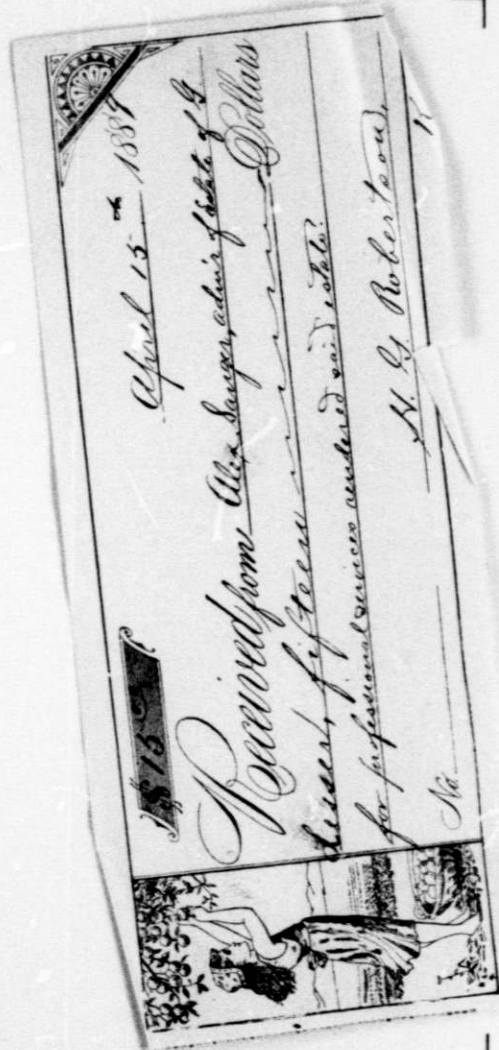 April 15th 1889
$15
Received from Alex Sanger, adm'r of estate of G
fifteen Dollars
for professional services rendered said estate.
H. G Robertson,
No.